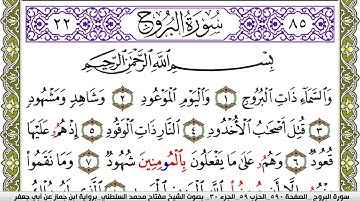 ٨٥ سُورَةُ البُرُوجِ ٢٢
بِسْمِ اللَّهِ الرَّحْمَٰنِ الرَّحِيمِ
وَالسَّمَاءِ ذَاتِ الْبُرُوجِ ١ وَالْيَوْمِ الْمَوْعُودِ ٢ وَشَاهِدٍ وَمَشْهُودٍ
٣ قُتِلَ أَصْحَابُ الْأُخْدُودِ ٤ النَّارِ ذَاتِ الْوَقُودِ ٥ إِذْ هُمُ عَلَيْهَا
قُعُودٌ ٦ وَهُمُ عَلَىٰ مَا يَفْعَلُونَ بِالْمُومِنِينَ شُهُودٌ ٧ وَمَا نَقَمُوا
سورة البروج _ الصفحة ٥٩٠_ الحزب ٥٩_ الجزء ٣٠_ بصوت الشيخ مفتاح محمد السلطني _برواية ابن جماز عن أبي جعفر